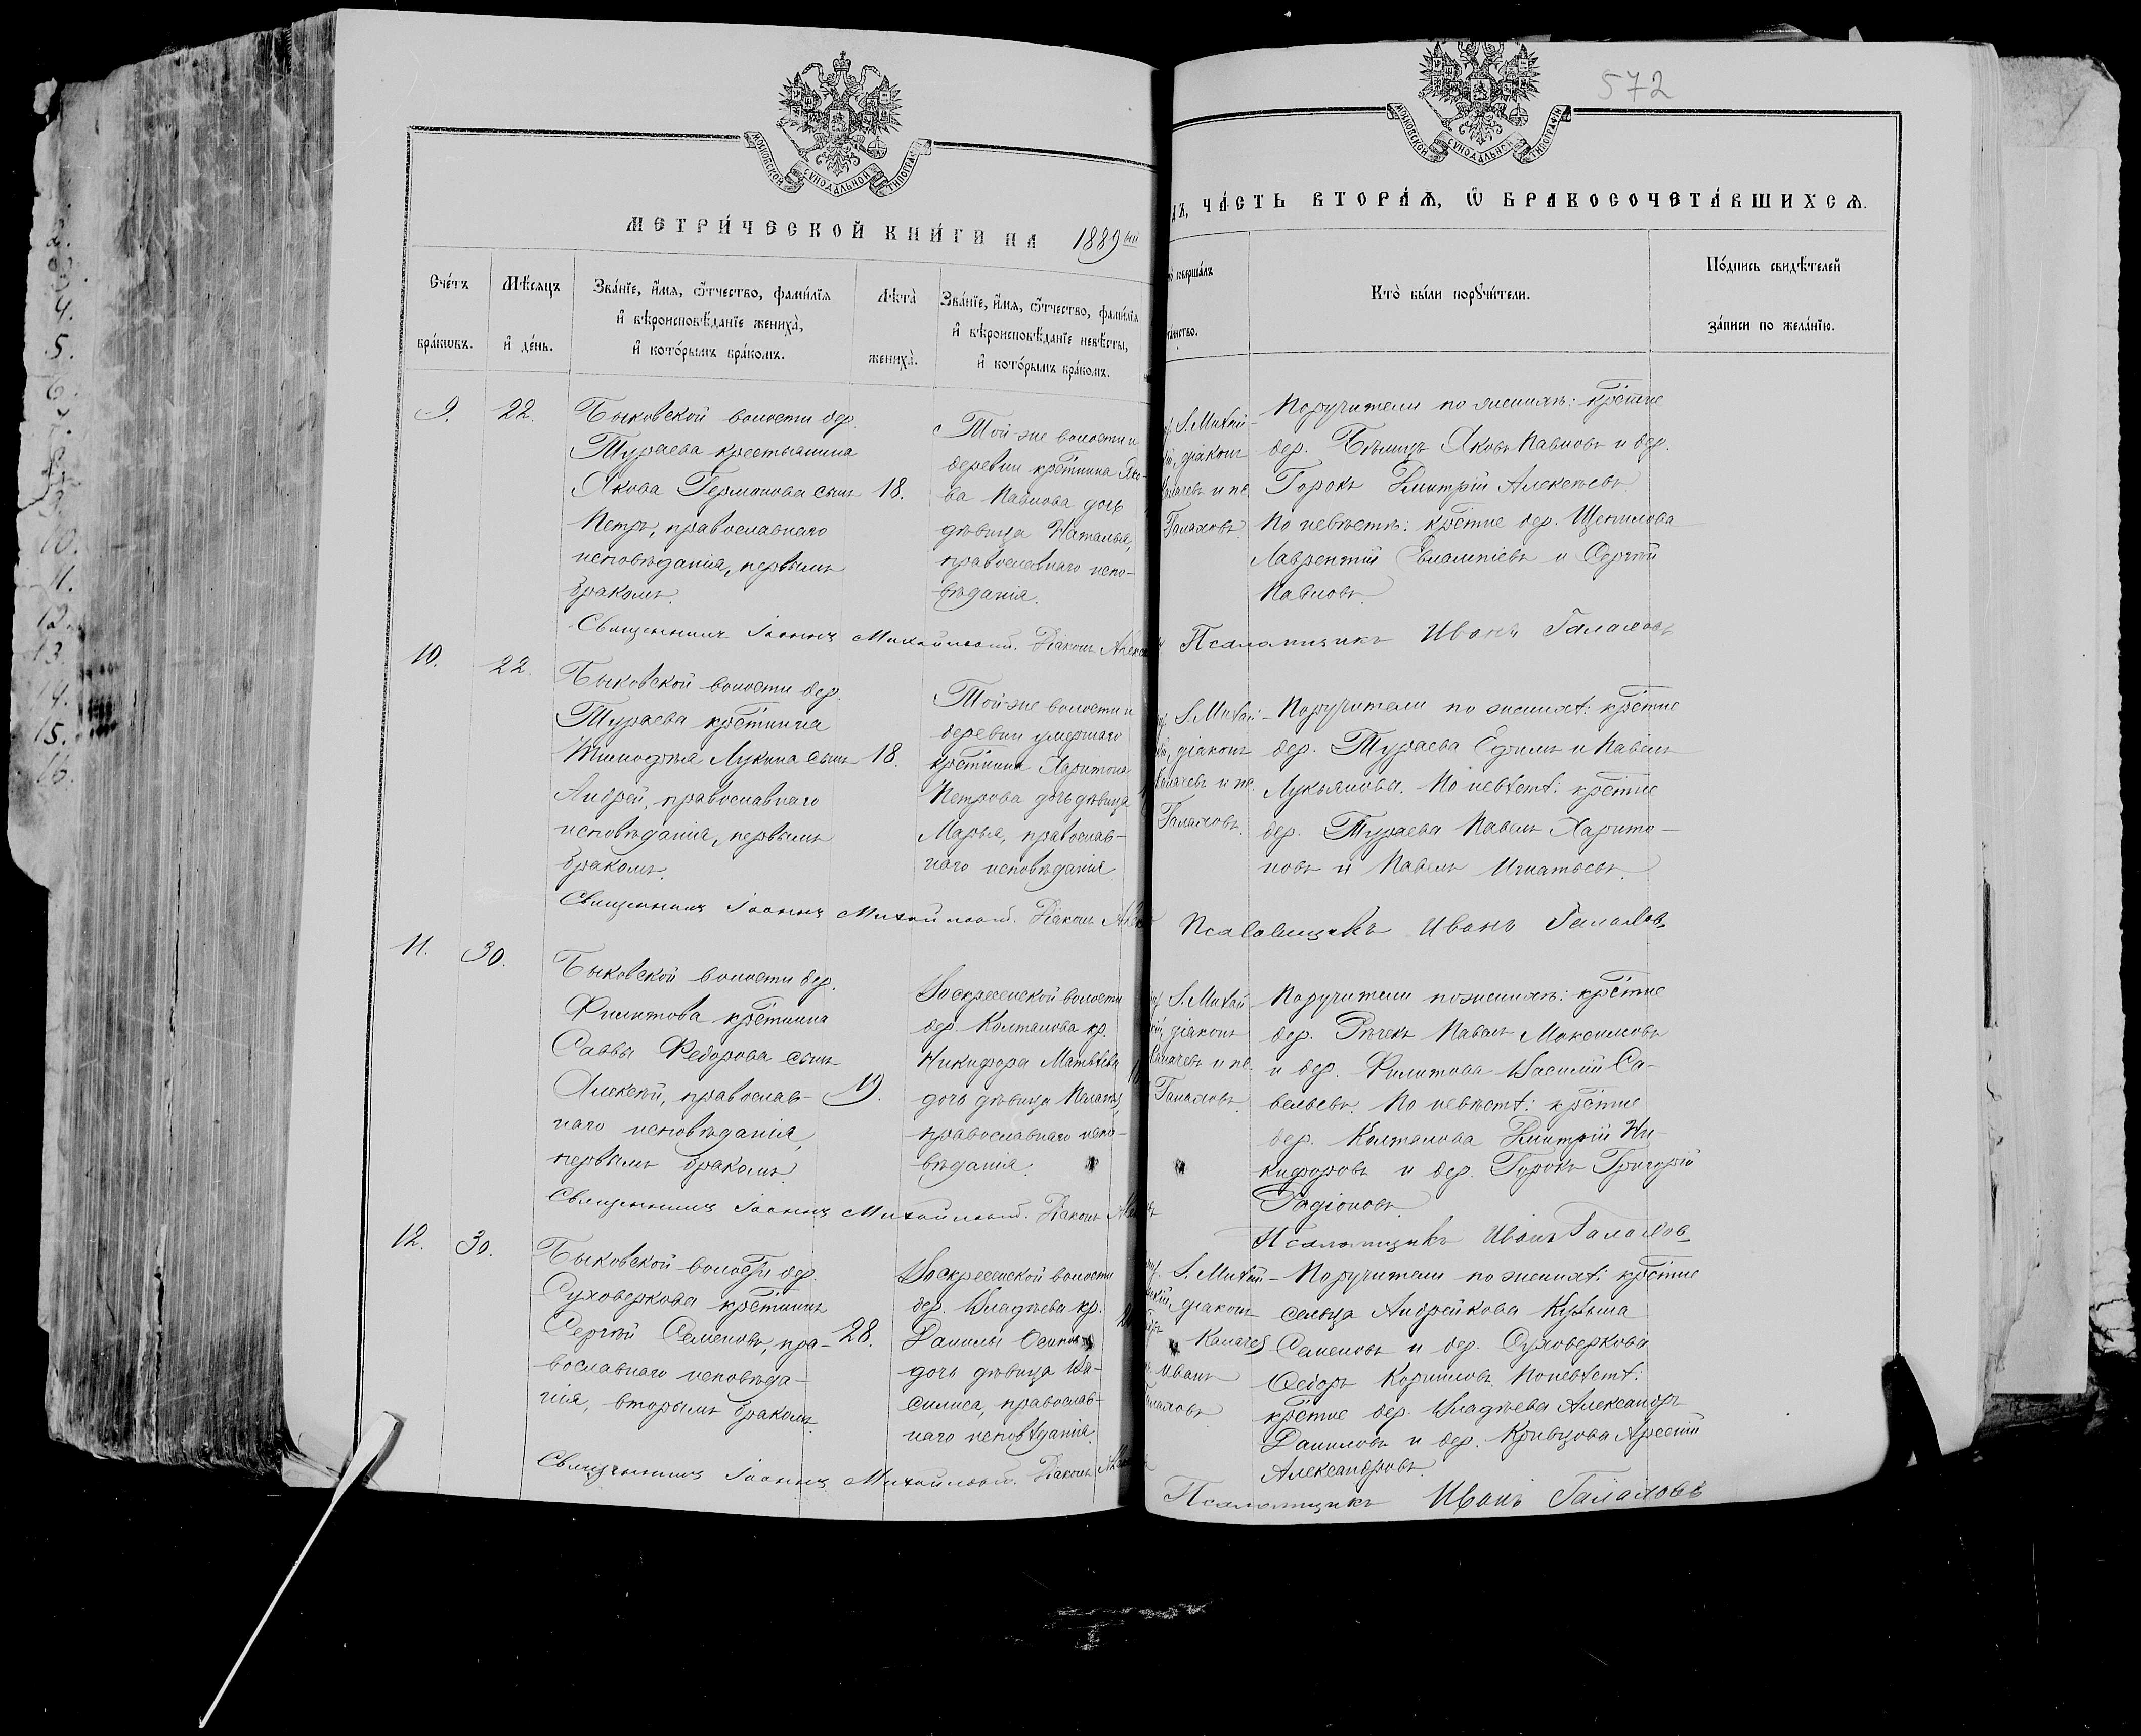 572
МОСКОВСКОЙ СѴНОДАЛЬНОЙ ТИПОГРАФ
МОСКОВСКОЙ СѴНОДАЛЬН ТИПОГРАФІИ
МЕТРИ́ЧЕСКОЙ КНИ́ГИ НА 1889ый
ЧА́СТЬ ВТОРА́Я, Ѡ БРАКОСОЧЕТА́ВШИХСЯ.
Сче́тъ бра́ковъ.
Мѣ́сяцъ и де́нь.
Зва́нїе, и́мя, ѻ́тчество, фами́лїя
и вѣроисповѣ́данїе жениха̀,
и кото́рымъ бра́комъ.
Лѣта̀ жениха̀.
Зва́нїе, и́мя, ѻ́тчество, фами́лїя
и вѣроисповѣ́данїе невѣ́сты,
и кото́рымъ бра́комъ.
соверша́лъ
Кто̀ бы́ли порꙋчи́тели.
По́дпись свидѣ́телей
за́писи по жела́нїю.
9. 22.
Быковской волости дер.
Тураева крестьянина
Якова Германова сынъ 18.
Петръ, православнаго
исповѣданія, первымъ
бракомъ.
Той-же волости и
деревни крестнина Яко-
ва Павлова дочь
дѣвица Наталья,
православнаго испо-
вѣданія.
І. Михай-
діаконъ
Калачевъ и пс.
Галаховъ.
Поручители по женихѣ: крестне
дер. Яковъ Павловъ и дер.
Горокъ Димитрій Алексѣевъ.
По невѣстѣ: крестне дер. Щепилова
Лаврентій Евлампіевъ и Сергѣй
Павловъ.
Священникъ Іоаннъ Михайловскій. Діаконъ
Псаломщикъ Иванъ Галаховъ
10. 22.
Быковской волости дер.
Тураева крестнина
Тимофѣя Лукина сынъ 18.
Андрей, православнаго
исповѣданія, первымъ
бракомъ.
Той-же волости и
деревни умершаго
крестнина Харитона
Петрова дочь дѣвица
Марья, православ-
наго исповѣданія.
І. Михай-
діаконъ
Калачевъ и пс.
Галаховъ.
Поручители по женихѣ: крестне
дер. Тураева Ефимъ и Павелъ
Лукьяновы. По невѣстѣ: крестне
дер. Тураева Павелъ Харито-
новъ и Павелъ Игнатьевъ.
Священникъ Іоаннъ Михайловскій. Діаконъ
Псаломщикъ Иванъ Галаховъ
11. 30.
Быковской волости дер.
Филитова крестнина
Саввы Федорова сынъ
Алексѣй, православ- 19.
наго исповѣданія,
первымъ бракомъ.
Воскресенской волости
дер. Колталова кр.
Никифора Матвѣева
дочь дѣвица
православнаго испо-
вѣданія.
І. Михай
діаконъ
Калачевъ и пс.
Галаховъ.
Поручители по женихѣ: крестне
дер. Рѣчекъ Павелъ Максимовъ
и дер. Филитова Василій Са-
вельевъ. По невѣстѣ: крестне
дер. Колталова Димитрій Ни-
кифоровъ и дер. Горокъ Григорій
Радіоновъ.
Священникъ Іоаннъ Михайловскій. Діаконъ
Псаломщикъ Иванъ Галаховъ
12. 30.
Быковской волости дер.
Суховеркова крестнинъ
Сергѣй Семеновъ, пра- 28.
вославнаго исповѣда-
нія, вторымъ бракомъ.
Воскресенской волости
дер. Владѣева кр.
Данилы Осипова
дочь дѣвица Ва-
силиса, православ-
наго исповѣданія.
І. Михай-
діаконъ
Калачев
Иванъ
Галаховъ
Поручители по женихѣ: крестне
сельца Андрейкова Кузьма
Семеновъ и дер. Суховеркова
Ѳедоръ Корниловъ. По невѣстѣ:
крестне дер. Владѣева Александръ
Даниловъ и дер. Кривцова Арсеній
Александровъ.
Священникъ Іоаннъ Михайловскій. Діаконъ
Псаломщикъ Иванъ Галаховъ
4.
5.
10.
11.
12.
13
14.
15.
16.